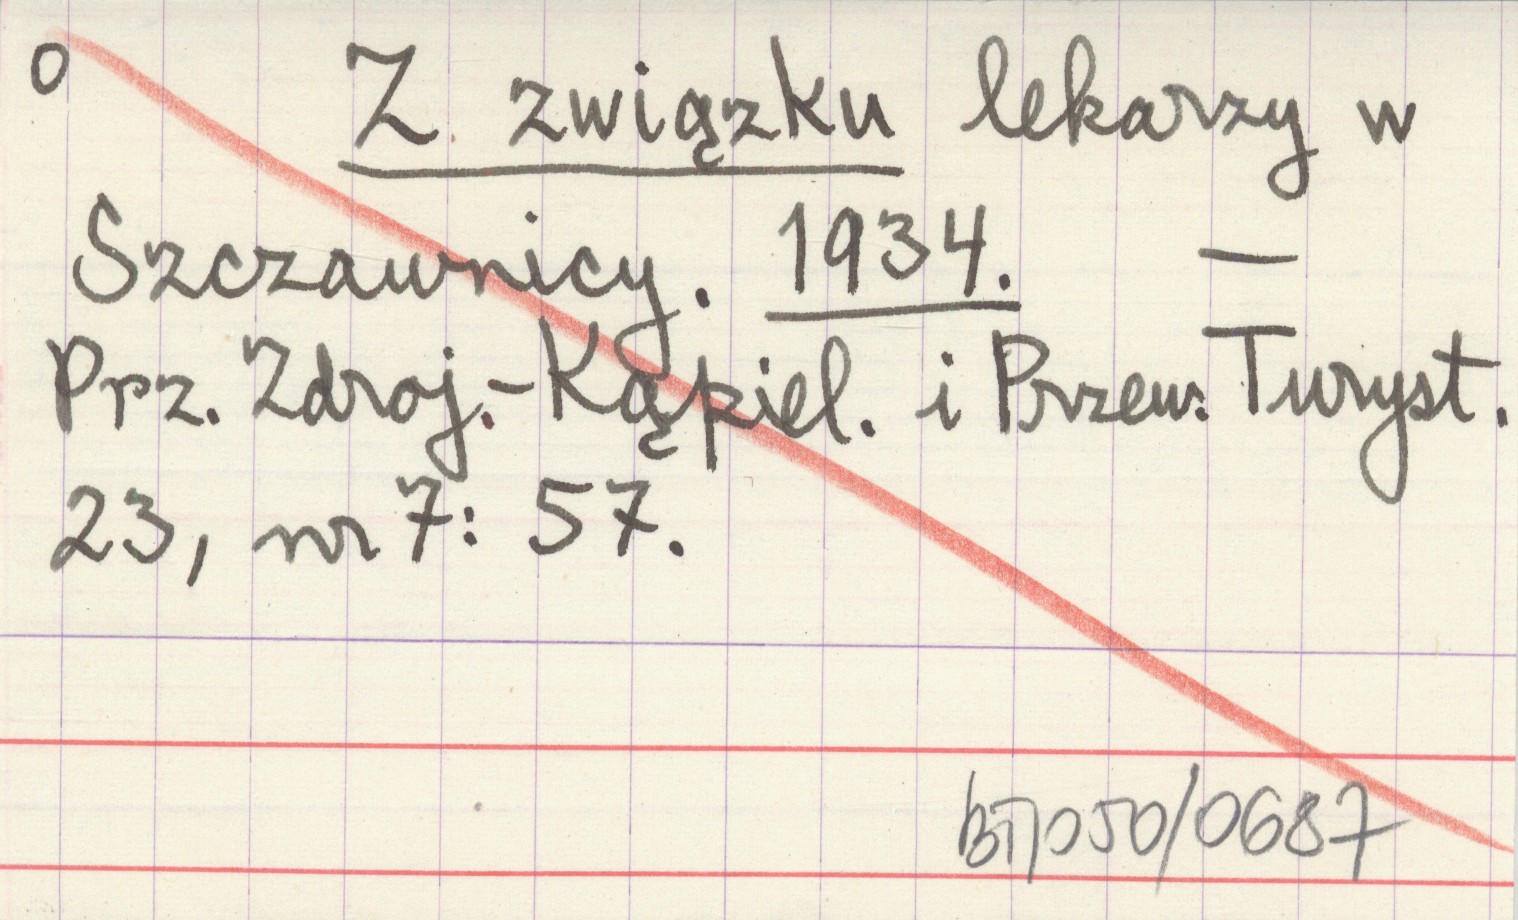 0
Z związku lekarzy w
Szczawnicy. 1934. —
Prz. Zdroj.-Kąpiel. i Przew. Turyst.
23, nr 7: 57.
050/0687